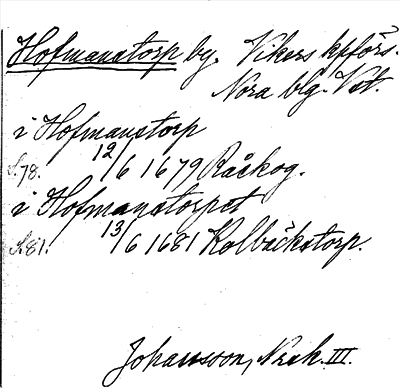 Hofmanstorp by. Vikers kpförs.
Nora blg. Vst.
i Hofmanstorp
S.78. 12/6 1679 Råskog.
i Hofmanstorpet
S.81. 13/6 1681 Kolbäckstorp.
Johansson, Norak. III.